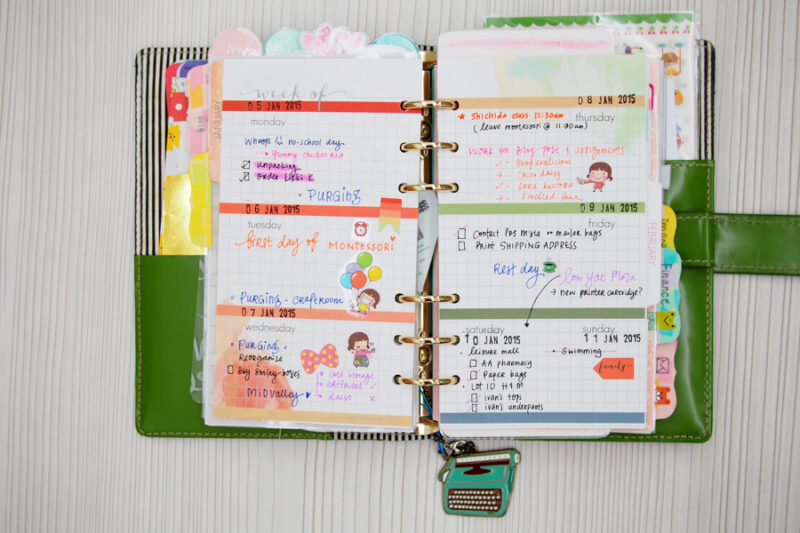 week of
JANUARY
05 JAN 2015
monday
Whoops no-school day
Yummy chicken rice
unpacking
PURGING
06 JAN 2015
tuesday
first day of MONTESSORI
PURGING - CRAFTROOM
07 JAN 2015
wednesday
PURGING
Reorganize
Buy smiley boxes
MIDVALLEY
cold storage
artfriend
daiso x
08 JAN 2015
thursday
Shichida class 11:30am
(leave montessori @ 11:00am)
WORK on Blog Post & assignments
Shopaholicious
Cocoa Daisy
Freckled Fawn
09 JAN 2015
friday
Contact Pos Msia mailer bags
Print SHIPPING ADDRESS
Rest day
low Yat Plaza
→ new printer cartridge?
FEBRUARY
saturday
10 JAN 2015
leisure mall
AA pharmacy
Paper bags
LOT 10 H&M
ivan's tops
ivan's underpants
sunday
11 JAN 2015
Swimming
family
Finance